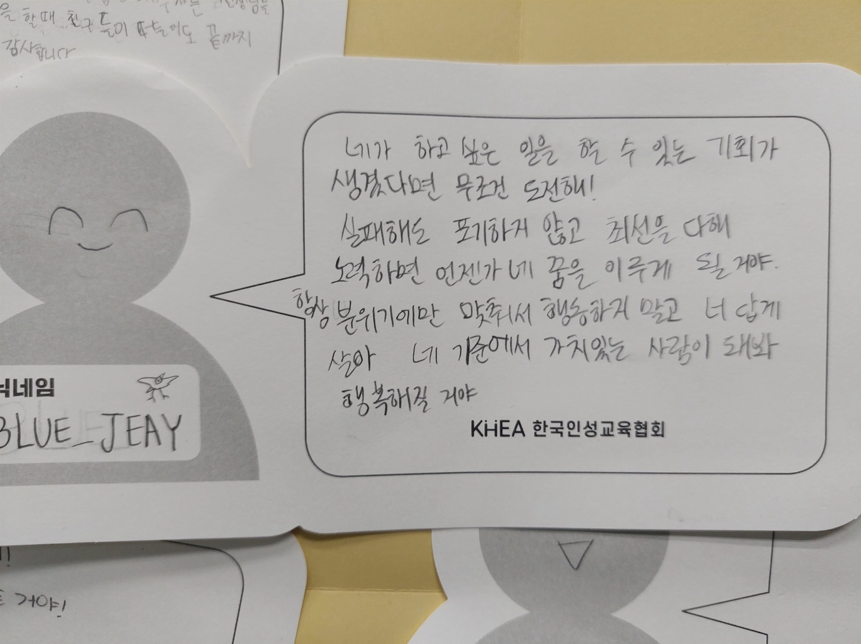 할 때 친구들이 떠들어도 끝까지
감사합니다
네가 하고 싶은 일을 할 수 있는 기회가
생겼다면 무조건 도전해!
실패해도 포기하지 않고 최선을 다해
노력하면 언젠가 네 꿈을 이루게 될 거야.
항상 분위기에만 맞춰서 행동하지 말고 너 답게
살아 네 기준에서 가치있는 사람이 돼봐
행복해질 거야
KHEA 한국인성교육협회
닉네임
BLUE_JEAY
거야!